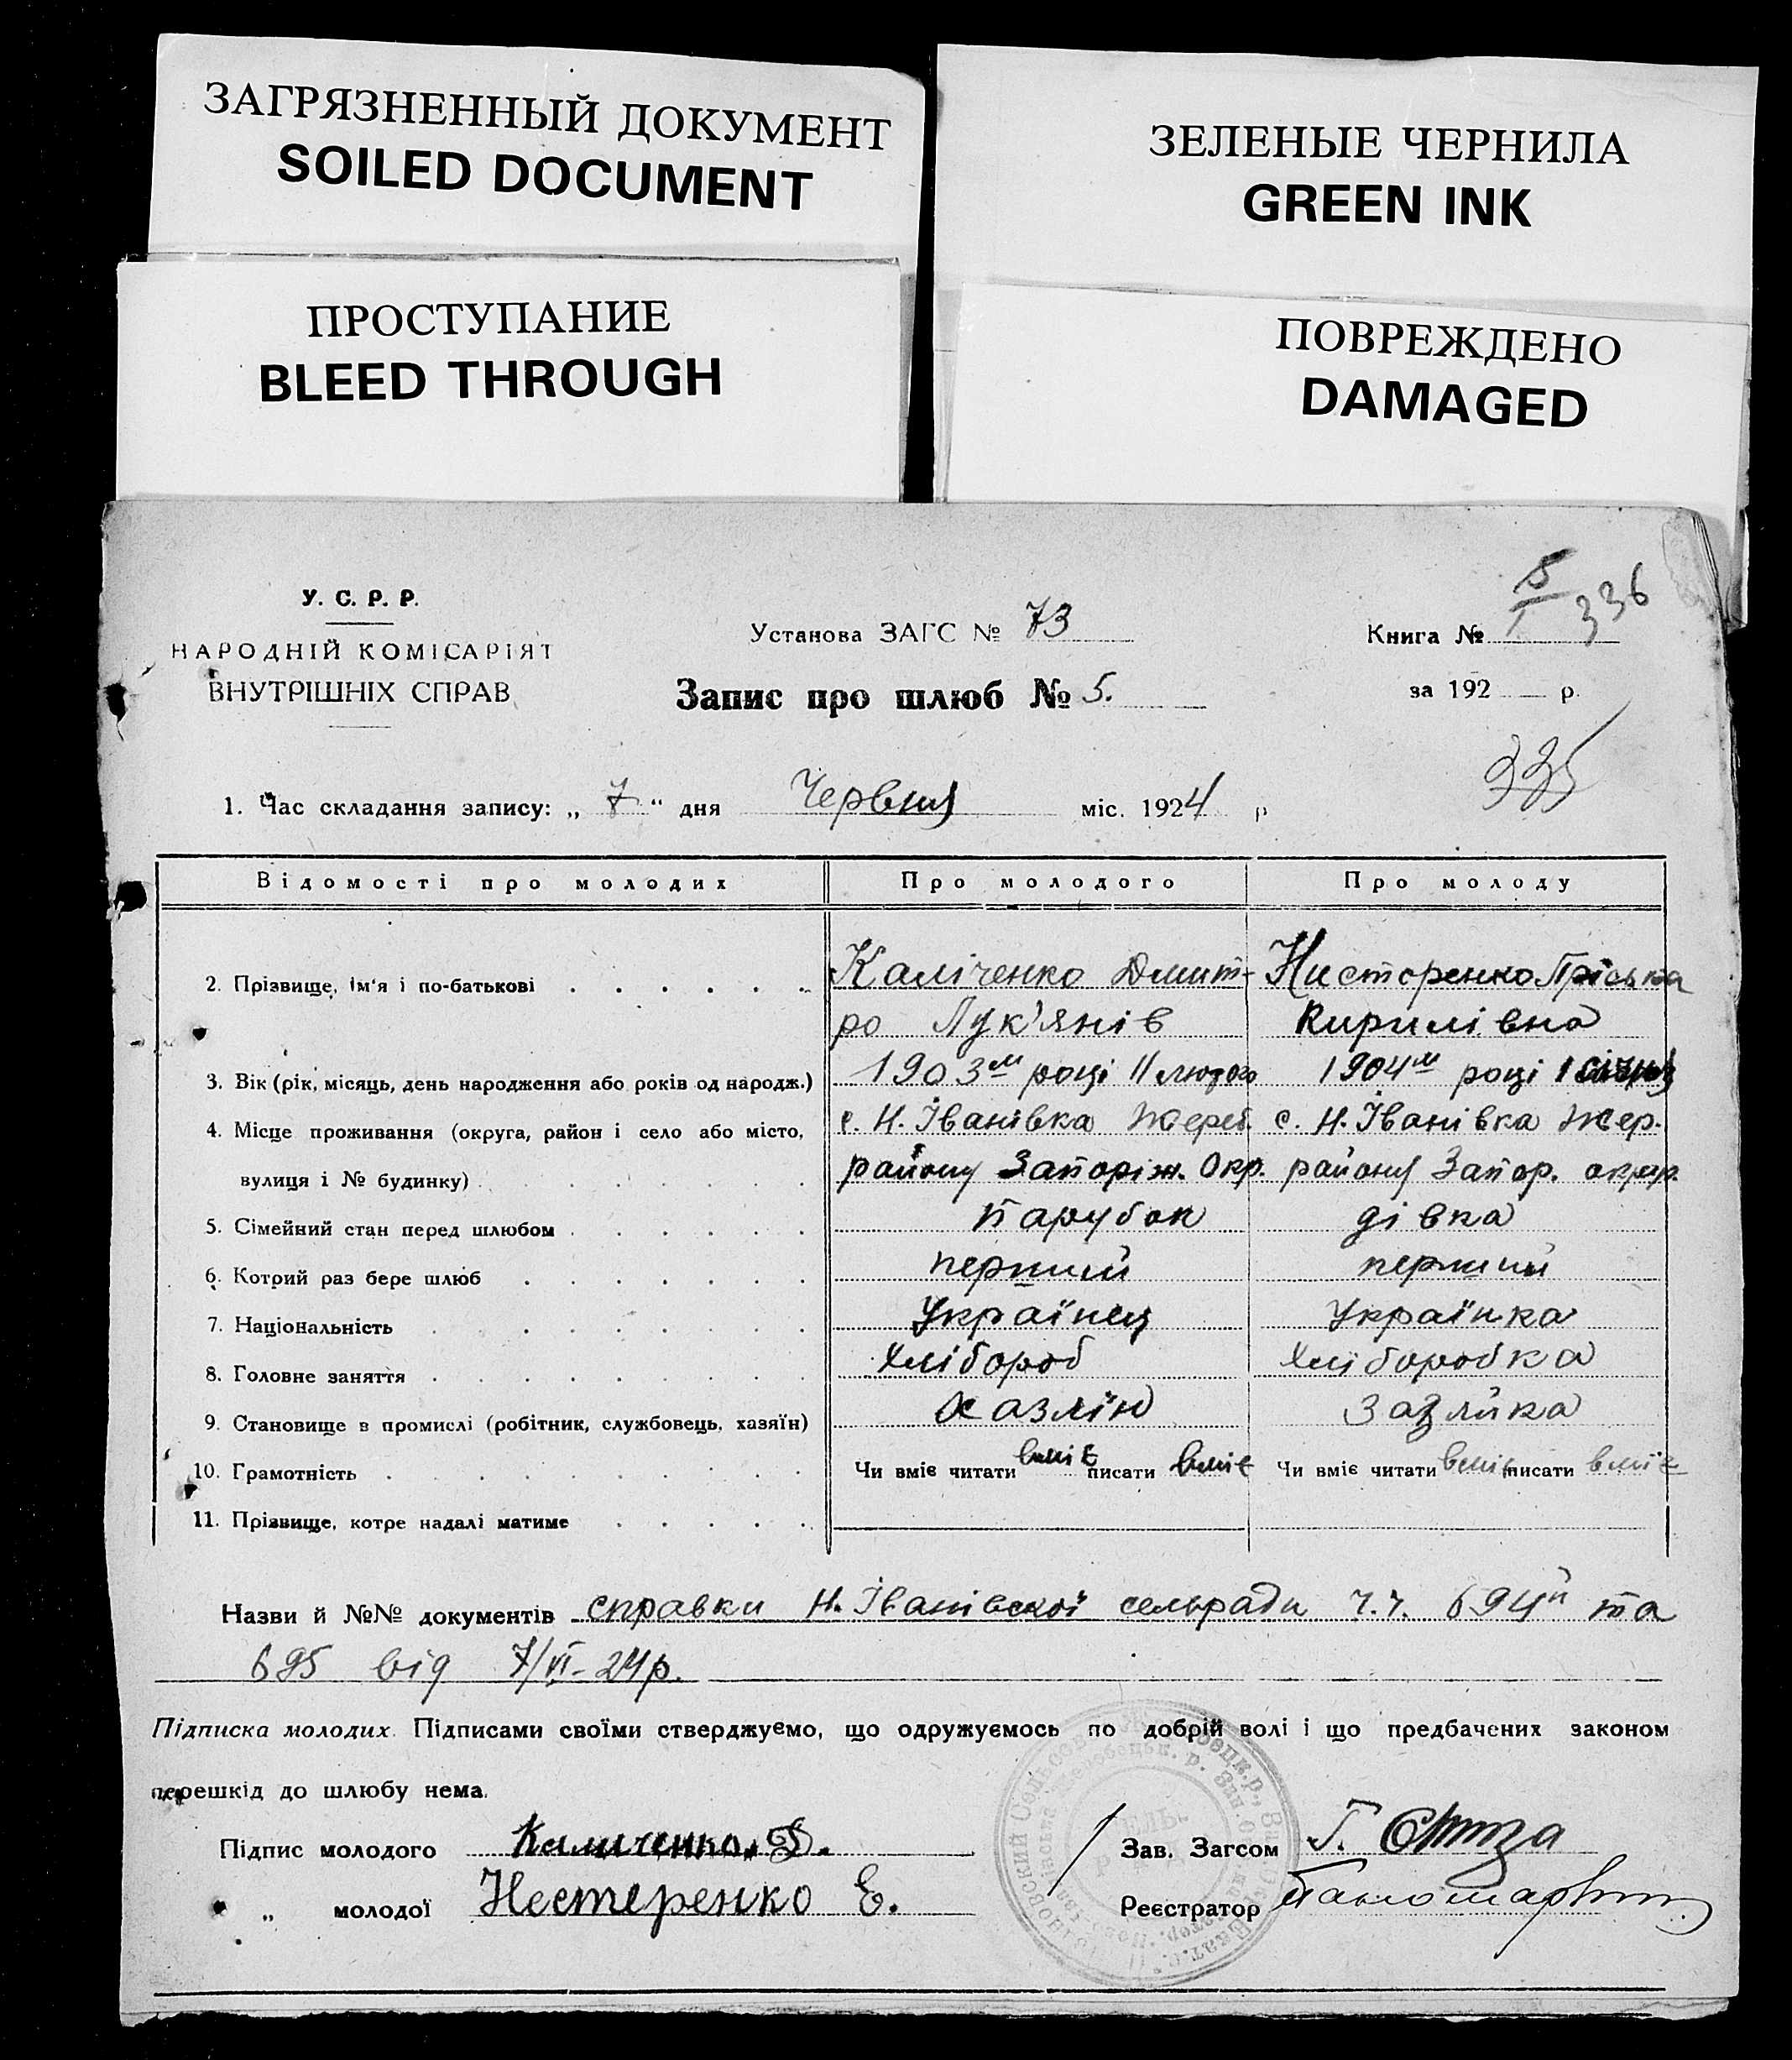 ЗАГРЯЗНЕННЫЙ ДОКУМЕНТ
SOILED DOCUMENT
ЗЕЛЕНЫЕ ЧЕРНИЛА
GREEN INK
ПРОСТУПАНИЕ
BLEED THROUGH
ПОВРЕЖДЕНО
DAMAGED
У. С. Р. Р.
НАРОДНІЙ КОМІСАРІЯТ
ВНУТРІШНІХ СПРАВ
Установа ЗАГС № 73
Запис про шлюб № 5.
5
336
Книга №
за 192 р.
335
1. Час складання запису: „ 7 “ дня Червня міс. 1924 р
Відомості про молодих Про молодого Про молоду
2. Прізвище, ім'я і по-батькові Каліченко Дмит- Нисторенко Пріська
ро Лук'янів Кирилівна
3. Вік (рік, місяць, день народження або років од народж.) 1903м році 11 лютого 1904м році 1 січня
4. Місце проживання (округа, район і село або місто, с. Н. Іванівка Жереб. с. Н. Іванівка Жер.
вулиця і № будинку) району Запоріж. Окр. району Запор. окр.
5. Сімейний стан перед шлюбом парубок дівка
6. Котрий раз бере шлюб перший перший
7. Національність Українец Українка
8. Головне заняття Хлібороб Хліборобка
9. Становище в промислі (робітник, службовець, хазяїн) Хазяїн
10. Грамотність Чи вміє читати вміє писати вміє Чи вміє читати вміє писати вміє
11. Прізвище, котре надалі матиме
Назви й №№ документів справки Н. Іванівської сельради ч.ч. 694й та
695 від 7/VI-24р.
Підписка молодих. Підписами своїми стверджуємо, що одружуємось по добрій волі і що предбачених законом
перешкід до шлюбу нема.
Підпис молодого Каличенко Д.
Зав. Загсом Г.
„ молодої Нестеренко Е.
Реєстратор